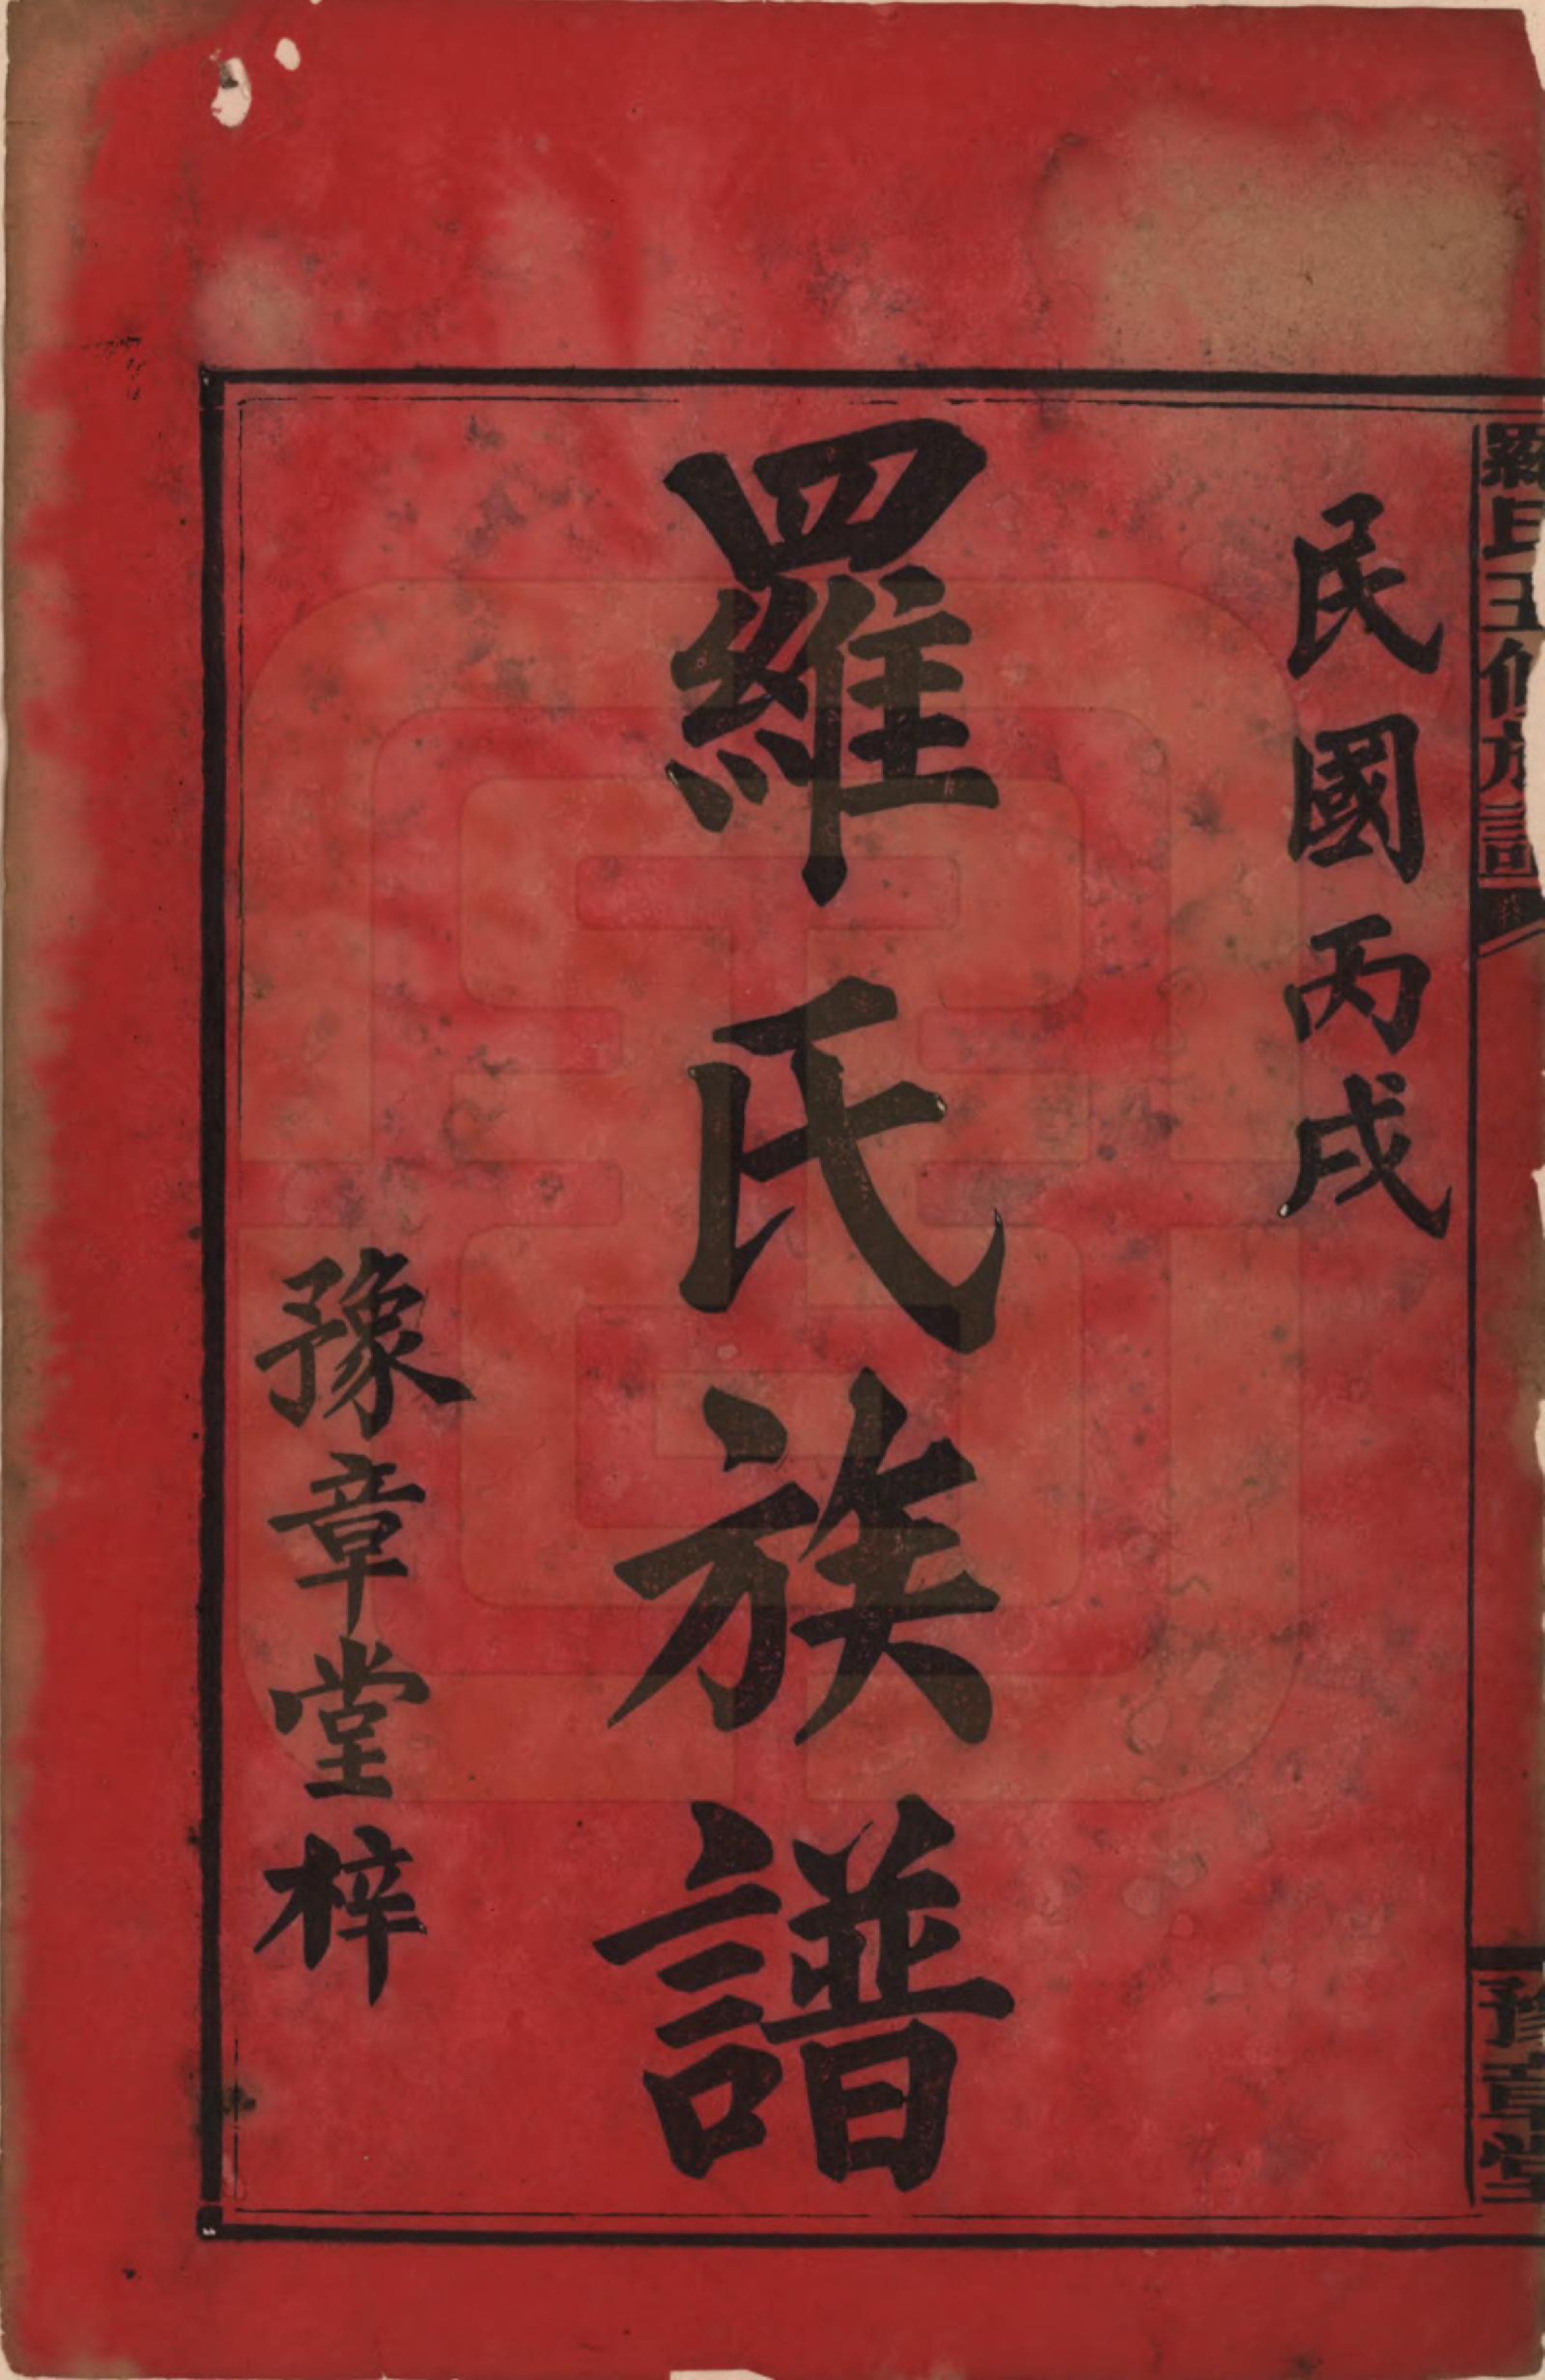 羅氏五修族譜
豫章堂
民國丙戌
羅氏族譜
豫章堂梓